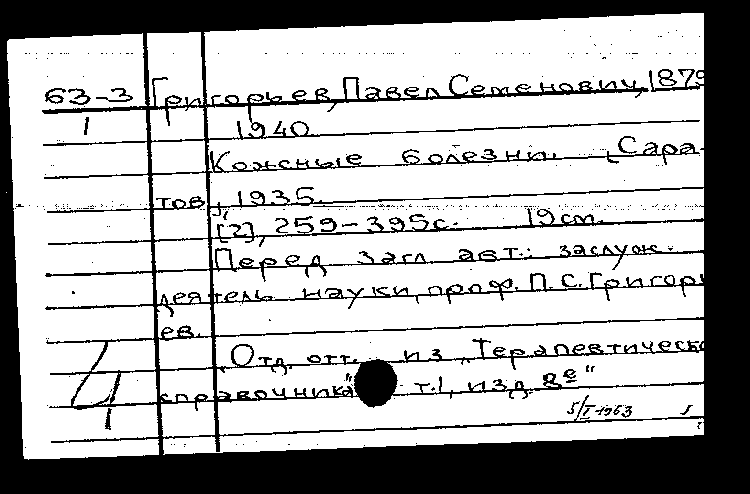 63-3 Григорьев, Павел Семенович, 1879
1 1940
Кожные болезни. [Сара-
тов], 1935.
[2], 259-395с. 19см.
Перед загл. авт.: заслуж.
деятель науки, проф. П.С.Григорь
ев.
Отд. отт. из "Терапевтическо
справочника" т.1, изд. 8е"
4
5/I-1963